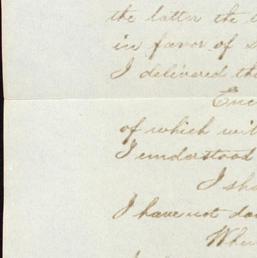 the latter the
in favor of
I delivered th
Enc
of which wit
I understood
I sha
I have not da
Whe